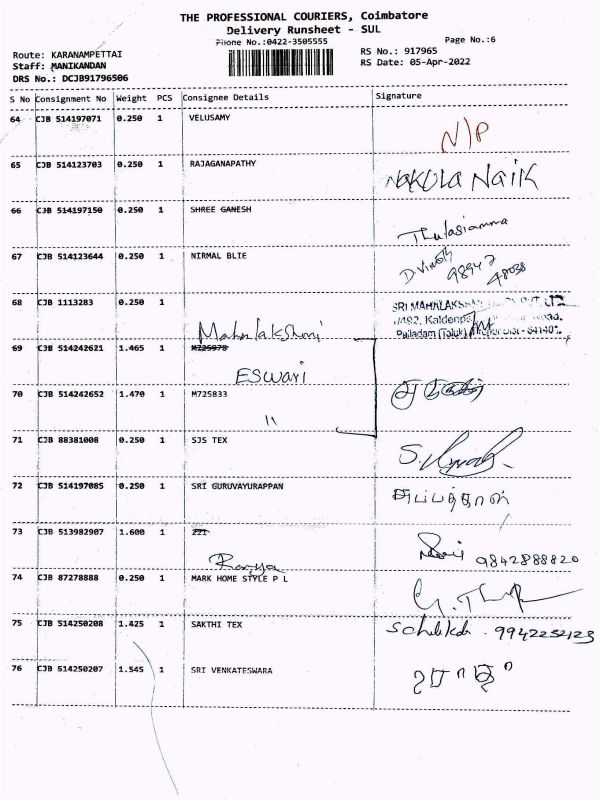 THE PROFESSIONAL COURIERS, Coimbatore
Delivery Runsheet - SUL
Phone No.:0422-3505555
Page No.:6
Route: KARANAMPETTAI
RS No.: 917965
Staff: MANIKANDAN
RS Date: 05-Apr-2022
DRS No.: DCJB91796506
S No Consignment No Weight PCS Consignee Details Signature
64 CJB 514197071 0.250 1 VELUSAMY N/P
65 CJB 514123703 0.250 1 RAJAGANAPATHY NAKULA NAIK
66 CJB 514197150 0.250 1 SHREE GANESH Thulasiamma
67 CJB 514123644 0.250 1 NIRMAL BLIE D Vinoth
98947
48038
68 CJB 1113283 0.250 1
Mahalakshmi
SRI MAHALAKSHMI
Palladam (Taluk)
69 CJB 514242621 1.465 1 M725978
ESWARI
70 CJB 514242652 1.470 1 M725833
"
71 CJB 88381008 0.250 1 SJS TEX
72 CJB 514197085 0.250 1 SRI GURUVAYURAPPAN அய்யத்தாள்
73 CJB 513982907 1.600 1 221
Ramya
9842888820
74 CJB 87278888 0.250 1 MARK HOME STYLE P L
75 CJB 514250208 1.425 1 SAKTHI TEX 9942252123
76 CJB 514250207 1.545 1 SRI VENKATESWARA